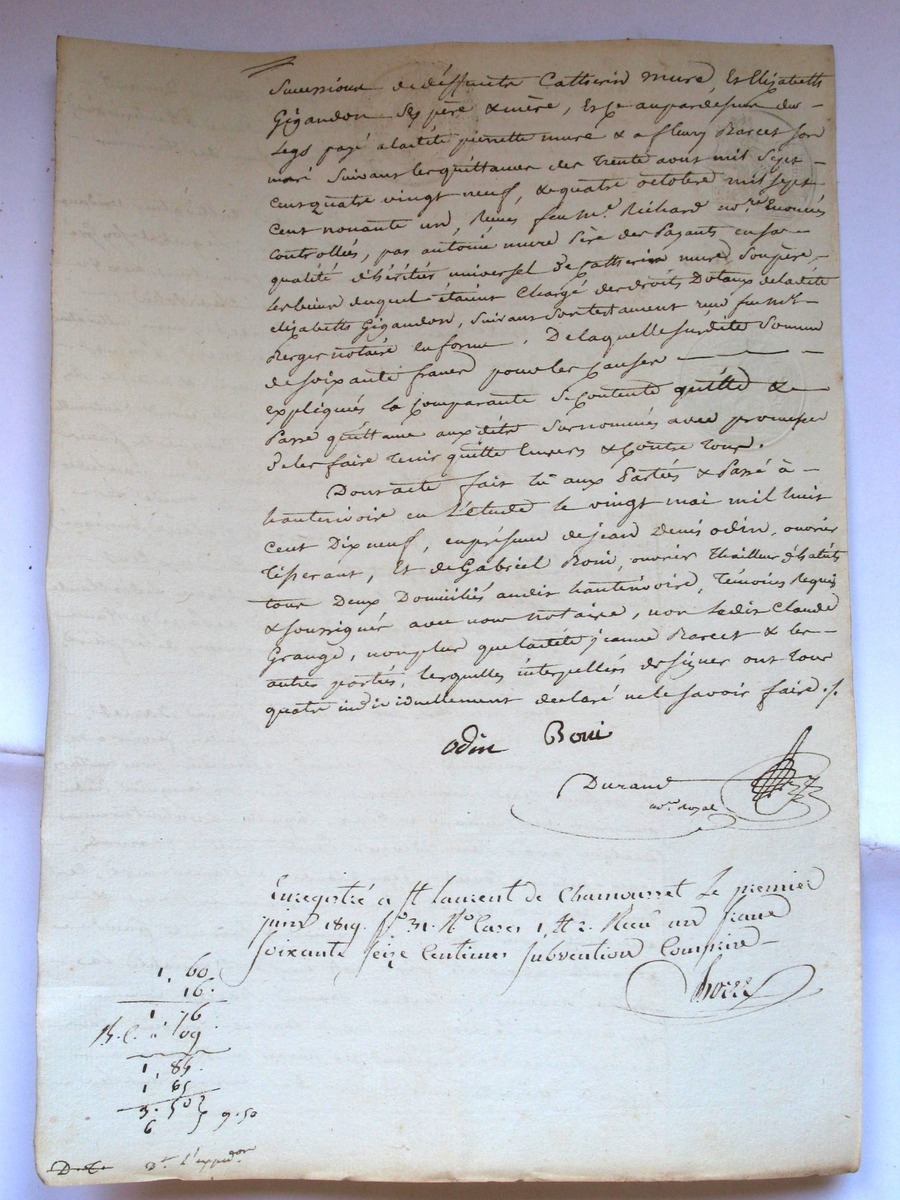 Successions de déffunts Catherin mure, Et Elizabeth
Gigandon Ses père & mère, Et ce au par dessus du
Legs payé a laditte pierrette mure & a fleury Barcet son
mari suivant les quittances des trente aout mil Sept
cent quatre vingt neuf, & quatre octobre mil sept
cent nonante un, Reçues feu Me. Richard nore.
controllés, par antoine mure père des Payants en sa
qualité d'héritier universel de Catherin mure Son père,
Les biens duquel étaient Chargé des droits Dotaux de ladite
elizabeth Gigandon, Suivant Son testament reçu feu me
Berger notaire en forme. De laquelle susdite Somme
de soixante francs pour les Causes
expliqués la Comparante Se Contente quitte &
Passe quittance aux dits Surnommés avec promesse
de les faire tenir quitte Envers & Contre tous.
Dont acte fait lû aux Parties & Passé à
hauterivoire en L'étude le vingt mai mil huit
cent Dix neuf, en présence de jean Denis odin, ouvrier
Tisserant, Et de Gabriel Boni, ouvrier thailleur d'habits
tous Deux Domiciliés audit hauterivoire, Témoins Requis
& soussignés avec nous notaire, non ledit Claude
Grange, non plus que ladite jeanne Barcet & les
autres parties, lesquelles interpellées de signer ont tous
quatre individuellement déclaré ne le savoir faire ./.
odin Boni
Durand
nore. royal
Enregistré a St laurent de Chamousset Le premier
juin 1819. fo 31. Ro Cases 1, & 2. Recu un franc
soixante seize Centimes subvention Comprise
1, 60.
16.
1. 76
09
1, 85.
1 65
3. 50
6 9.50
Dt. L'exppdon